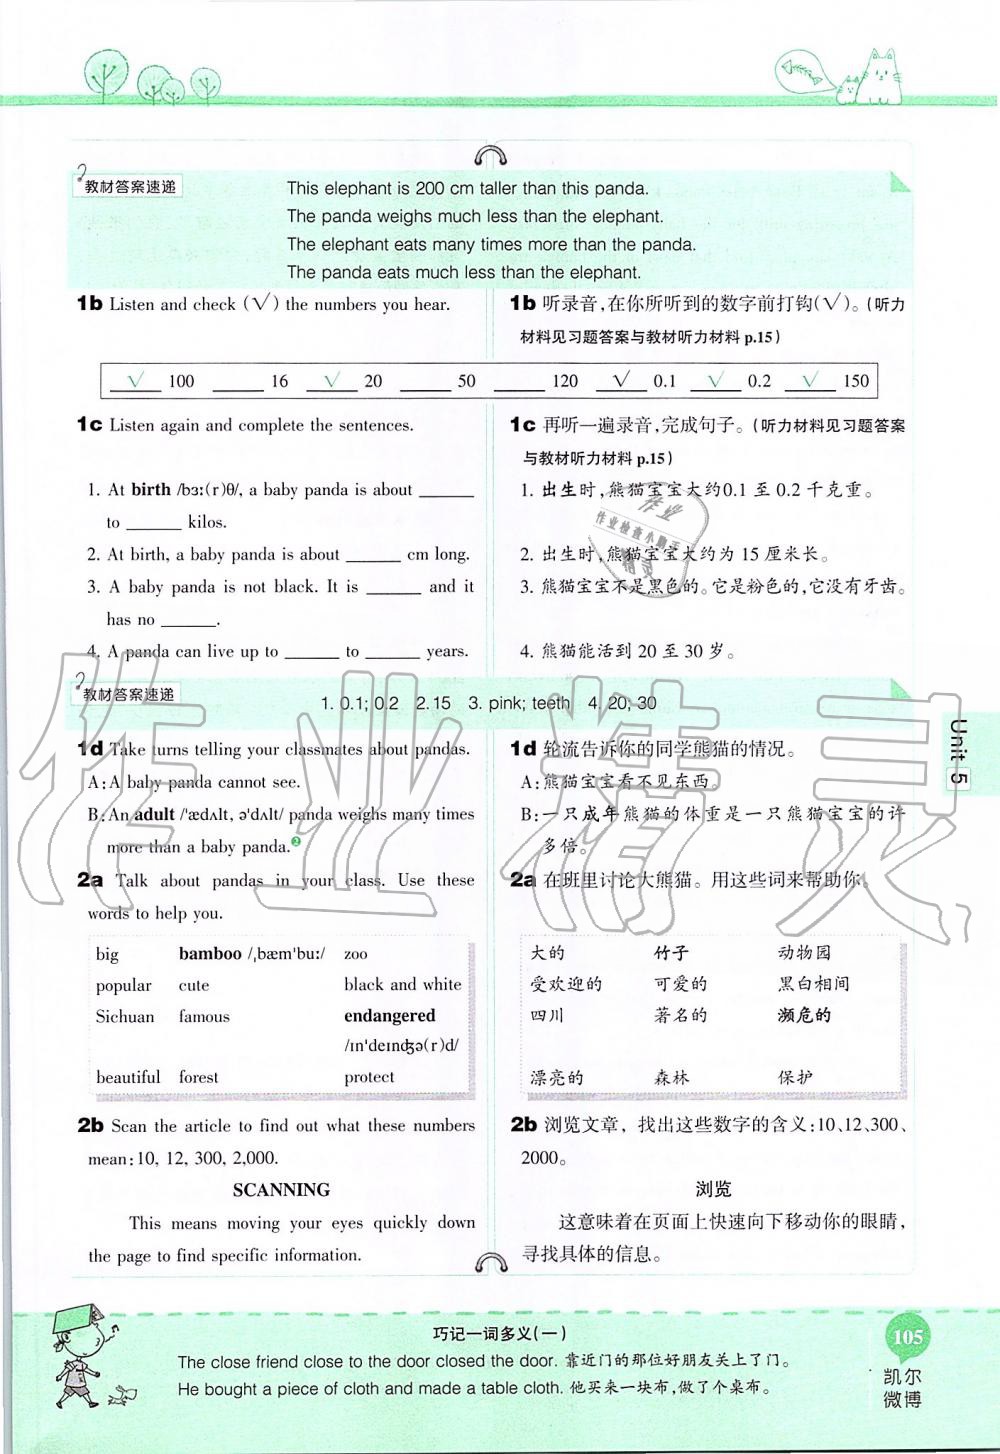 教材答案速递
This elephant is 200 cm taller than this panda.
The panda weighs much less than the elephant.
The elephant eats many times more than the panda.
The panda eats much less than the elephant.
1b Listen and check (√) the numbers you hear.
1b 听录音,在你所听到的数字前打钩(√)。(听力
材料见习题答案与教材听力材料 p.15)
√ 100 ____ 16 √ 20 ____ 50 ____ 120 √ 0.1 √ 0.2 √ 150
1c Listen again and complete the sentences.
1c 再听一遍录音,完成句子。(听力材料见习题答案
与教材听力材料 p.15)
1. At birth /bɜː(r)θ/, a baby panda is about ______
to ______ kilos.
1. 出生时,熊猫宝宝大约0.1 至 0.2 千克重。
2. At birth, a baby panda is about ______ cm long.
2. 出生时,熊猫宝宝大约为 15 厘米长。
3. A baby panda is not black. It is ______ and it
has no ______.
3. 熊猫宝宝不是黑色的。它是粉色的,它没有牙齿。
4. A panda can live up to ______ to ______ years.
4. 熊猫能活到 20 至 30 岁。
教材答案速递
1. 0.1; 0.2 2. 15 3. pink; teeth 4. 20; 30
1d Take turns telling your classmates about pandas.
A: A baby panda cannot see.
B: An adult /ˈædʌlt, əˈdʌlt/ panda weighs many times
more than a baby panda.❷
1d 轮流告诉你的同学熊猫的情况。
A:熊猫宝宝看不见东西。
B:一只成年熊猫的体重是一只熊猫宝宝的许
多倍。
2a Talk about pandas in your class. Use these
words to help you.
2a 在班里讨论大熊猫。用这些词来帮助你。
big bamboo /ˌbæmˈbuː/ zoo
popular cute black and white
Sichuan famous endangered
/ɪnˈdeɪndʒə(r)d/
beautiful forest protect
大的 竹子 动物园
受欢迎的 可爱的 黑白相间
四川 著名的 濒危的
漂亮的 森林 保护
2b Scan the article to find out what these numbers
mean: 10, 12, 300, 2,000.
2b 浏览文章, 找出这些数字的含义:10、12、300、
2000。
SCANNING
This means moving your eyes quickly down
the page to find specific information.
浏览
这意味着在页面上快速向下移动你的眼睛,
寻找具体的信息。
Unit 5
作业精灵
作业
作业检查小助手
精灵
巧记一词多义(一)
The close friend close to the door closed the door. 靠近门的那位好朋友关上了门。
He bought a piece of cloth and made a table cloth. 他买来一块布,做了个桌布。
105
凯尔
微博